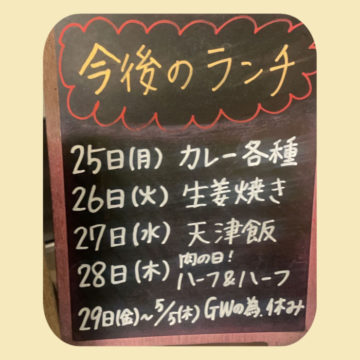 今後のランチ
25日(月) カレー各種
26日(火) 生姜焼き
27日(水) 天津飯
28日(木) 肉の日!
ハーフ&ハーフ
29日(金)~5/5(木)GWの為、休み